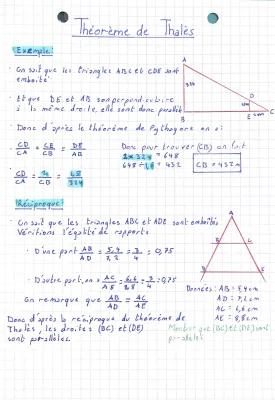 Théorème de Thalès
Exemple:
- On sait que les triangles ABC et CDE sont emboité
- Et que DE et AB sont perpendiculaire à la même droite, elle sont donc parallèle
- Donc d'après le théorème de Pythagore on a:
CD/CA = CE/CB = DE/AB
Donc pour trouver (CB) on fait
2 x 324 = 648
648 ÷ 1,5 = 432
CB = 432m
CD/CA = /CB = /324
A
D
B
E
C
Réciproque:
- On sait que les triangles ABC et ADE sont emboités
Vérifions l'égalité de rapports
- D'une part AB/AD = 5,4/7,2 = 3/4 = 0,75
- D'autre part, on a AC/AE = 6,6/8,8 = 3/4 = 0,75
On remarque que AB/AD = AC/AE
Donc d'après la réciproque du théorème de
Thalès, les droites (BC) et (DE)
sont parallèles.
A
B
C
E
Données: AB = 5,4cm
AD = 7,2cm
AC = 6,6cm
AE = 8,8cm
Montrer que (BC) et (DE) sont
parallèles